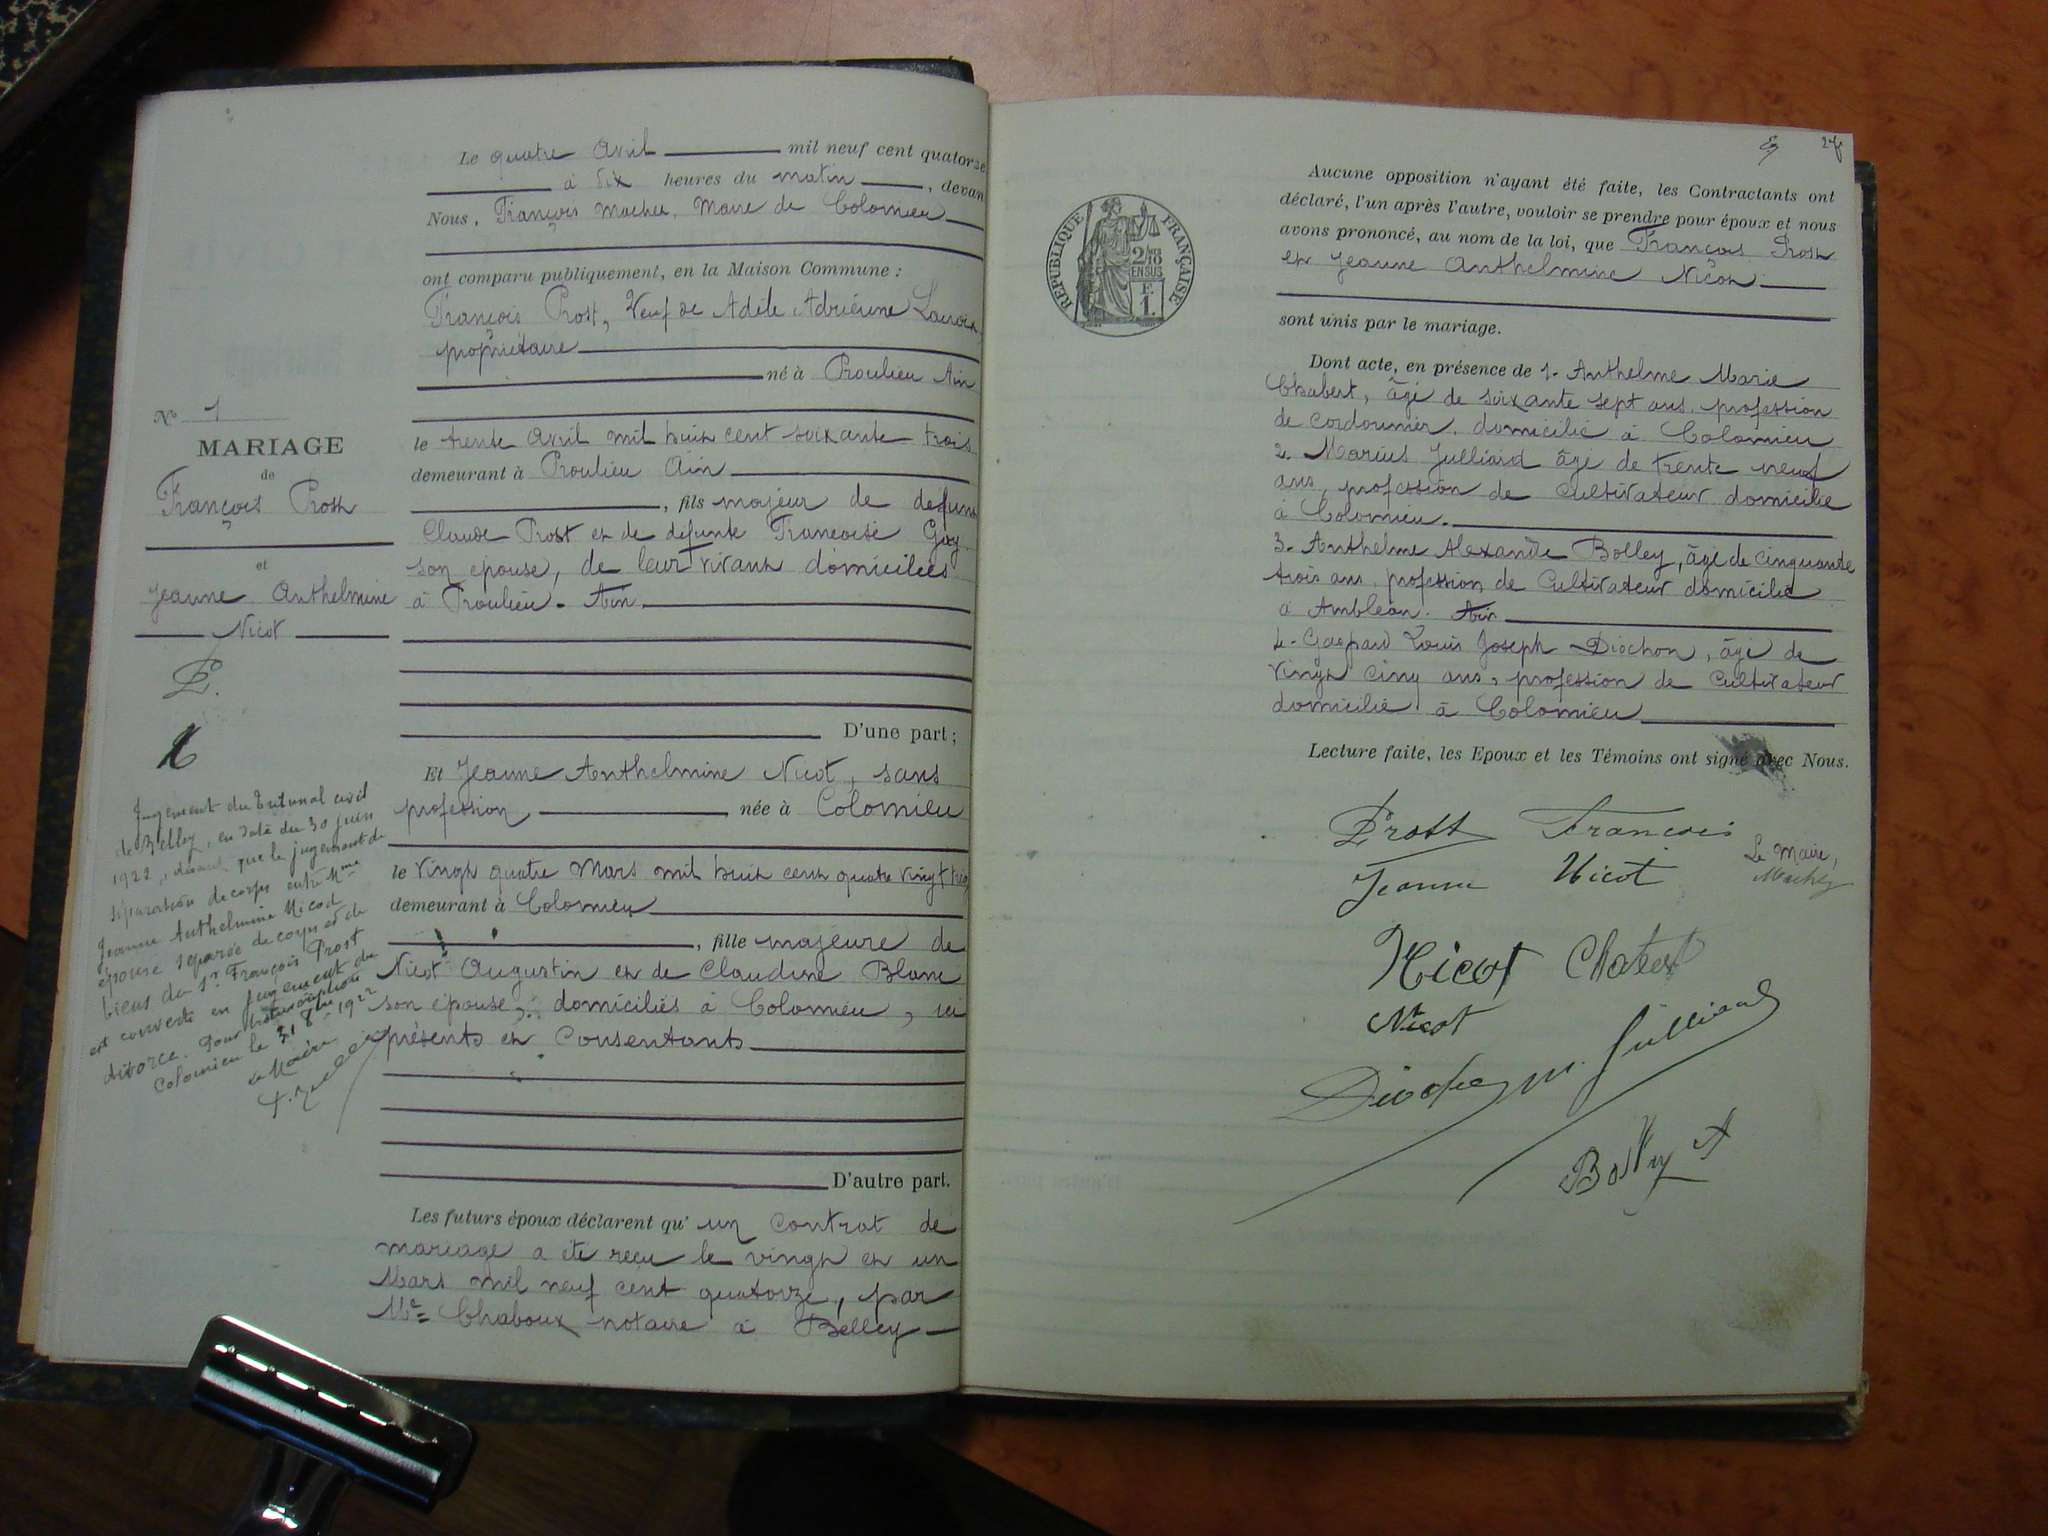 Le quatre Avril mil neuf cent quatorze
à dix heures du matin, devan
Nous, François Machet, Maire de Colomieu
ont comparu publiquement, en la Maison Commune :
François Prost, Veuf de Adèle Adriénne Lacroix,
propriétaire
né à Proulieu Ain
le trente Avril mil huit cent soixante trois
demeurant à Proulieu Ain
, fils majeur de defunt
Claude Prost et de défunte Francoise Guy
son epouse, de leur vivant domiciliés
à Proulieu. Ain.
D'une part ;
Et Jeanne Anthelmine Nicot, sans
profession née à Colomieu
le Vingt quatre Mars mil huit cent quatre vingt
demeurant à Colomieu
, fille majeure de
Nicot Augustin et de Claudine Blanc
son epouse, domiciliés à Colomieu, ici
présents et Consentants
D'autre part.
Les futurs époux déclarent qu'un contrat de
mariage a été reçu le vingt et un
Mars mil neuf cent quatorze, par
Me Chaboux notaire à Belley
No 1
MARIAGE
de
François Prost
et
Jeanne Anthelmine
Nicot
P.
Jugement du Tribunal civil
de Belley, en date du 30 juin
1922, que le jugement de
séparation de corps entre Mme
Jeanne Anthelmine Nicot
épouse séparée de corps et de
biens du Sr François Prost
est converti en jugement de
divorce. Pour transcription
Colomieu le 31 8bre 1922
Le Maire
27
Aucune opposition n'ayant été faite, les Contractants ont
déclaré, l'un après l'autre, vouloir se prendre pour époux et nous
avons prononcé, au nom de la loi, que François Prost
et Jeanne Anthelmine Nicot
sont unis par le mariage.
RÉPUBLIQUE FRANÇAISE
2/10
EN SUS
F.
1.
Dont acte, en présence de 1. Anthelme Marie
Chabert, âgé de soixante sept ans, profession
de cordonnier, domicilié à Colomieu
2. Marius Julliard âgé de trente neuf
ans, profession de Cultivateur domicilié
à Colomieu.
3. Anthelme Alexandre Bolley, âgé de cinquante
trois ans, profession de Cultivateur domicilié
à Ambléon. Ain
4. Gaspard Louis Joseph Diochon, âgé de
vingt cinq ans, profession de Cultivateur
domicilié à Colomieu
Lecture faite, les Epoux et les Témoins ont signé avec Nous.
Prost François
Jeanne Nicot
Le Maire,
Machet
Nicot Chabert
Nicot
Diochon M. Julliard
Bolley A